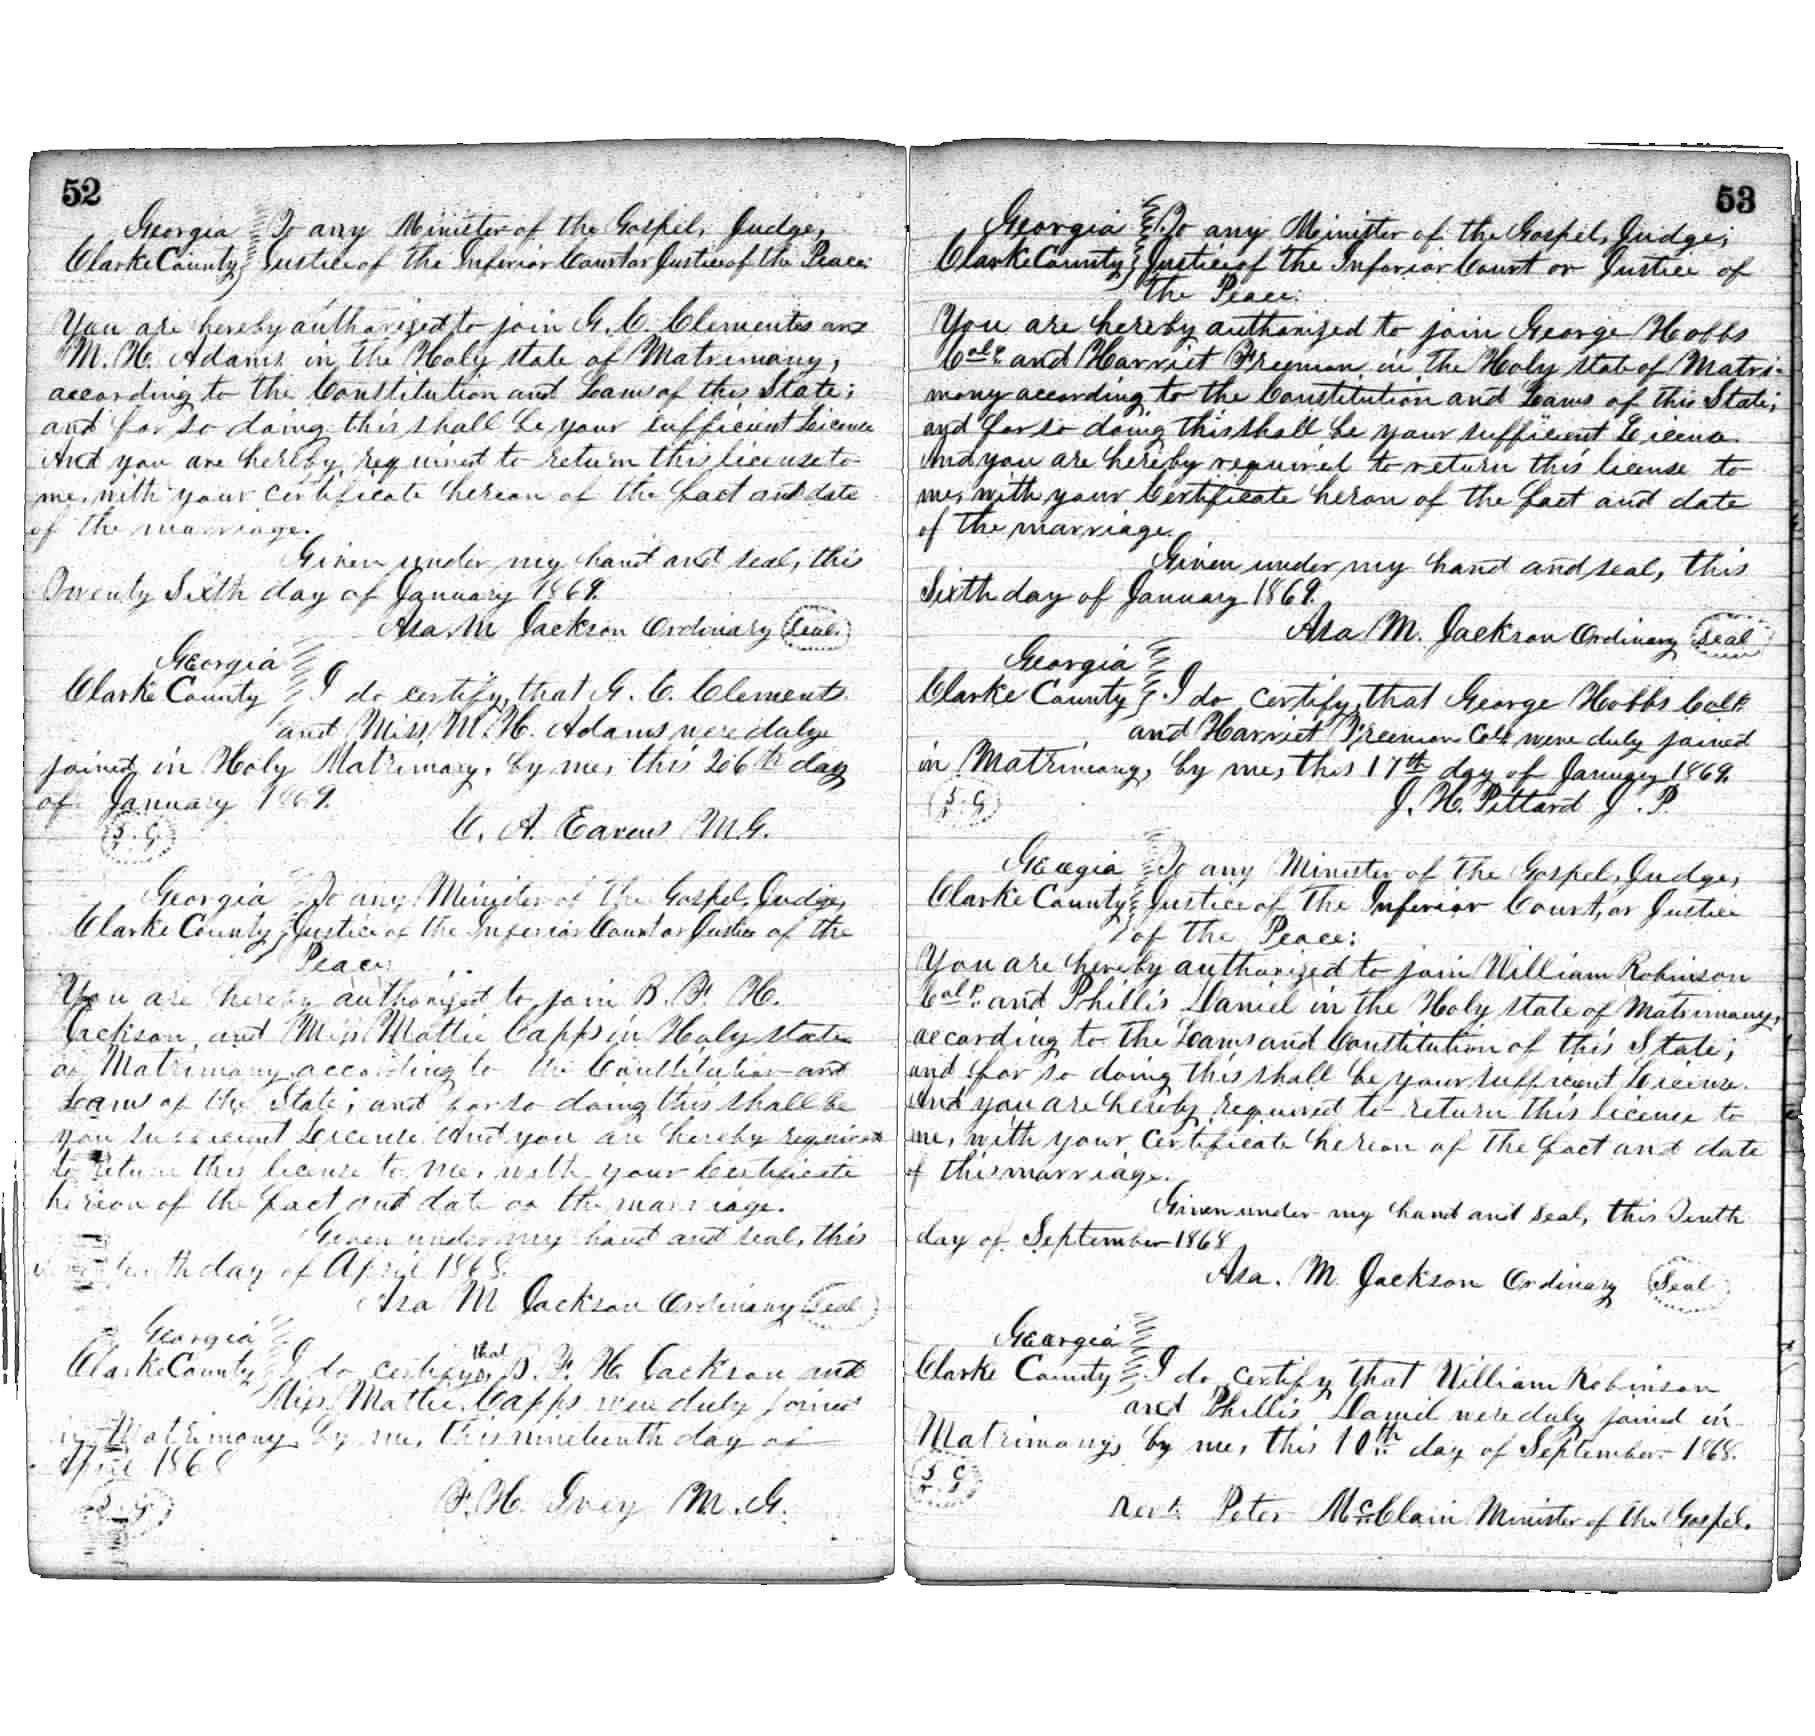 52
Georgia To any Minister of the Gospel, Judge,
Clarke County Justice of the Inferior Court or Justice of the Peace:
You are hereby authorized to join G. C. Clements and
M. H. Adams in the Holy state of Matrimony,
according to the Constitution and Laws of this State;
and for so doing this shall be your sufficient License
And you are hereby required to return this license to
me, with your certificate hereon of the fact and date
of the marriage.
Given under my hand and seal, this
Twenty Sixth day of January 1869.
Asa. M Jackson Ordinary Seal.
Georgia
Clarke County I do certify that G. C. Clements
and Miss M. H. Adams were duly
joined in Holy Matrimony, by me, this 26th day
of January 1869.
C. A. M.G.
Georgia To any Minister of the Gospel, Judge,
Clarke County Justice of the Inferior Court or Justice of the
Peace:
You are hereby authorized to join B. F. H.
Jackson, and Miss Mattie Capps in Holy state
of Matrimony according to the Constitution and
Laws of the State; and for so doing this shall be
you sufficient License And you are hereby required
to return this license to me, with your Certificate
hereon of the fact and date of the marriage.
Given under my hand and seal, this
day of April 1868.
Asa M Jackson Ordinary Seal
Georgia
Clarke County I do certify that B. F. H. Jackson and
Miss Mattie Capps were duly joined
in Matrimony, by me, this nineteenth day of
April 1868
F. H. Ivey M. G.
53
Georgia To any Minister of the Gospel, Judge,
Clarke County Justice of the Inferior Court or Justice of
the Peace:
You are hereby authorized to join George Hobbs
Cold. and Harriet Freeman in the Holy state of Matri-
mony according to the Constitution and Laws of this State;
and for so doing this shall be your sufficient License.
And you are hereby required to return this license to
me, with your Certificate heron of the fact and date
of the marriage.
Given under my hand and seal, this
Sixth day of January 1869.
Asa M. Jackson Ordinary Seal
Georgia
Clarke County I do certify, that George Hobbs Cold.
and Harriet Freeman Cold were duly joined
in Matrimony, by me, this 17th day of January 1869.
J. H. Pittard J. P.
Georgia To any Minister of the Gospel, Judge,
Clarke County Justice of the Inferior Court, or Justice
of the Peace:
You are hereby authorized to join William Robinson
Cold. and Phillis Daniel in the Holy state of Matrimony,
according to the Laws and Constitution of this State;
and for so doing this shall be your sufficient License.
And you are hereby required to return this license to
me, with your certificate hereon of the fact and date
of this marriage.
Given under my hand and seal, this Tenth
day of September 1868
Asa. M. Jackson Ordinary Seal
Georgia
Clarke County I do certify that William Robinson
and Phillis Daniel were duly joined in
Matrimony, by me, this 10th day of September 1868.
Revd. Peter McClain Minister of the Gospel.